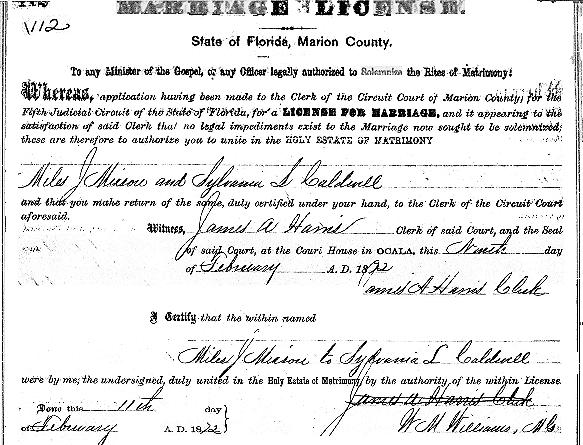 112
MARRIAGE LICENSE.
State of Florida, Marion County.
To any Minister of the Gospel, or any Officer legally authorized to Solemnize the Rites of Matrimony:
Whereas, application having been made to the Clerk of the Circuit Court of Marion County, for the
Fifth Judicial Circuit of the State of Florida, for a LICENSE FOR MARRIAGE, and it appearing to the
satisfaction of said Clerk that no legal impediments exist to the Marriage now sought to be solemnized;
these are therefore to authorize you to unite in the HOLY ESTATE OF MATRIMONY
Miles J Mixson and Sylvania L Caldwell
and that you make return of the same, duly certified under your hand, to the Clerk of the Circuit Court
aforesaid.
Witness, James A Harris Clerk of said Court, and the Seal
of said Court, at the Court House in OCALA, this Ninth day
of February A. D. 1872
James A Harris Clerk
I Certify that the within named
Miles J Mixson to Sylvania L Caldwell
were by me, the undersigned, duly united in the Holy Estate of Matrimony, by the authority of the within License.
James A Harris Clerk
Done this 11th day
of February A. D. 1872
W. M. Williams, M.G.